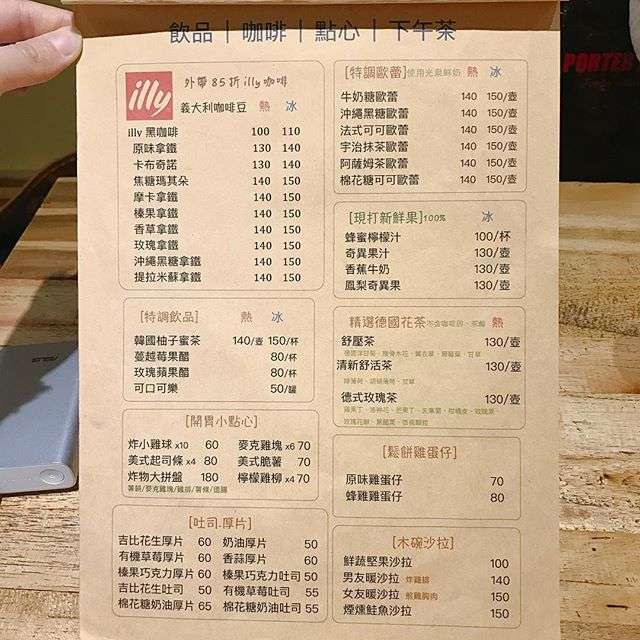 飲品 | 咖啡 | 點心 | 下午茶
illy
外帶 85折 illy咖啡
義大利咖啡豆 熱 冰
illy 黑咖啡 100 110
原味拿鐵 130 140
卡布奇諾 130 140
焦糖瑪其朵 140 150
摩卡拿鐵 140 150
榛果拿鐵 140 150
香草拿鐵 140 150
玫瑰拿鐵 140 150
沖繩黑糖拿鐵 140 150
提拉米蘇拿鐵 140 150
[特調飲品] 熱 冰
韓國柚子蜜茶 140/壺 150/杯
蔓越莓果醋 80/杯
玫瑰蘋果醋 80/杯
可口可樂 50/罐
[開胃小點心]
炸小雞球 x10 60 麥克雞塊 x6 70
美式起司條 x4 80 美式脆薯 70
炸物大拼盤 180 檸檬雞柳 x4 70
薯餅/麥克雞塊/雞排/薯條/德腸
[吐司.厚片]
吉比花生厚片 60 奶油厚片 50
有機草莓厚片 60 香蒜厚片 60
榛果巧克力厚片 60 榛果巧克力吐司 50
吉比花生吐司 50 有機草莓吐司 55
棉花糖奶油厚片 65 棉花糖奶油吐司 55
[特調歐蕾] 使用光泉鮮奶 熱 冰
牛奶糖歐蕾 140 150/壺
沖繩黑糖歐蕾 140 150/壺
法式可可歐蕾 140 150/壺
宇治抹茶歐蕾 140 150/壺
阿薩姆茶歐蕾 140 150/壺
棉花糖可可歐蕾 140 150/壺
[現打新鮮果] 100% 冰
蜂蜜檸檬汁 100/杯
奇異果汁 130/壺
香蕉牛奶 130/壺
鳳梨奇異果 130/壺
精選德國花茶 不含咖啡因、茶鹼 熱
舒壓茶 130/壺
清新舒活茶 130/壺
德式玫瑰茶 130/壺
[鬆餅雞蛋仔]
原味雞蛋仔 70
蜂雞雞蛋仔 80
[木碗沙拉]
鮮蔬堅果沙拉 100
男友暖沙拉 炸雞排 140
女友暖沙拉 煎雞胸肉 150
煙燻鮭魚沙拉 150
PORTER
ASUS